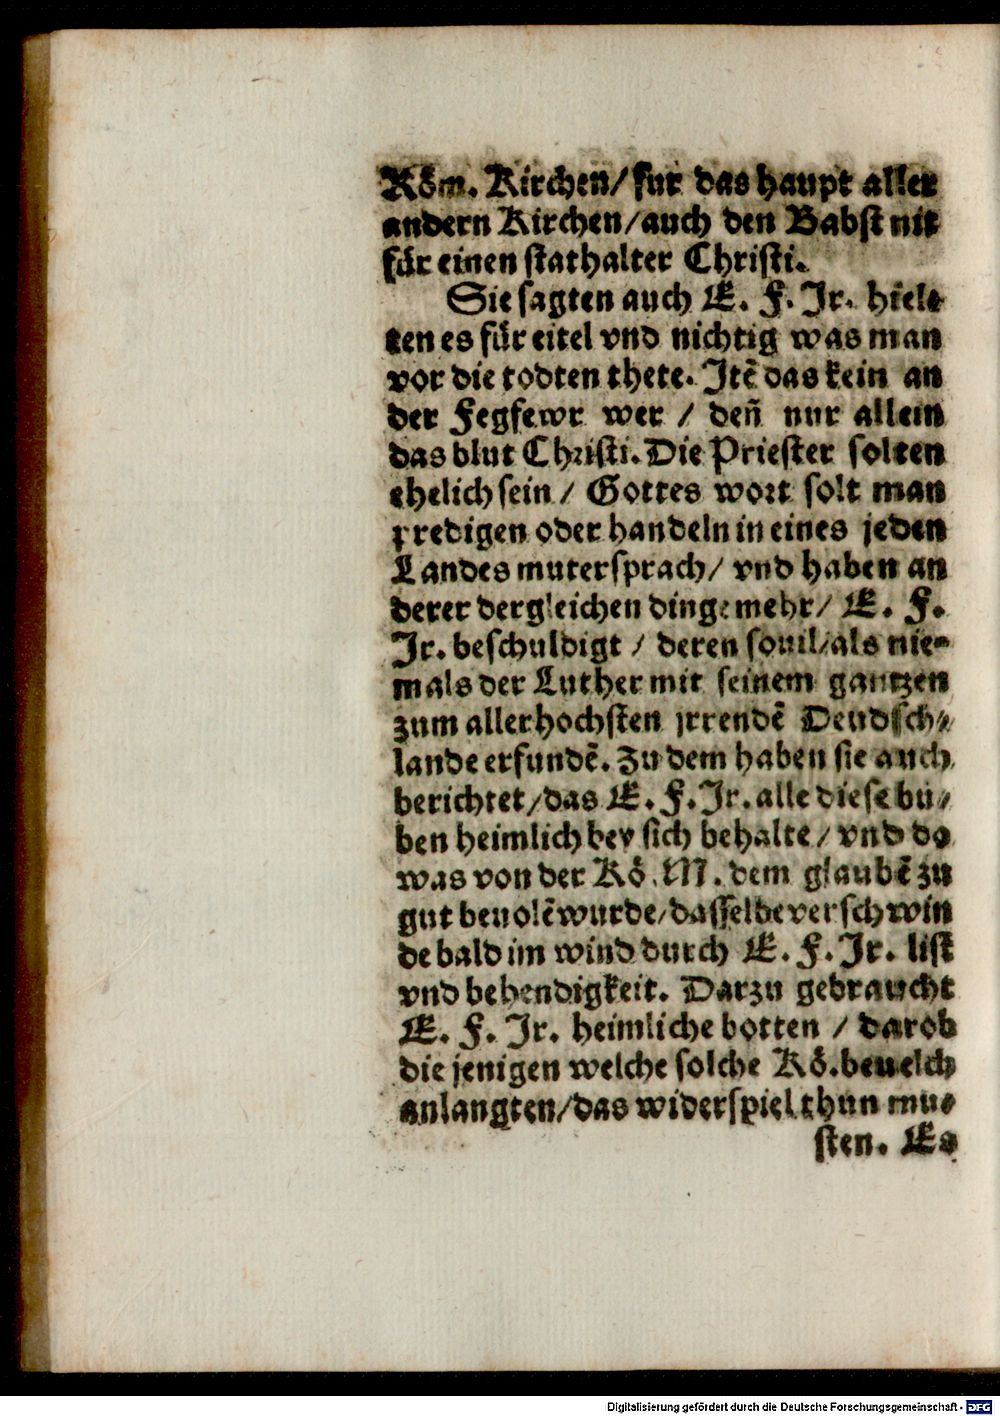 Röm. Kirchen/ fur das haupt aller
andern Kirchen/ auch den Babst nit
für einen stathalter Christi.
Sie sagten auch E. F. Jr. hiel⸗
ten es für eitel vnd nichtig was man
vor die todten thete. Jtẽ das kein an
der Fegfewr wer / deñ nur allein
das blut Christi. Die Priester solten
ehelich sein / Gottes wort solt man
predigen oder handeln in eines jeden
Landes mutersprach/ vnd haben an
derer dergleichen dinge mehr/ E. F.
Jr. beschuldigt / deren souil/als nie⸗
mals der Luther mit seinem gantzen
zum allerhochsten jrrendẽ Deudsch⸗
lande erfundẽ. Zu dem haben sie auch
berichtet/das E. F. Jr. alle diese bu⸗
ben heimlich bey sich behalte/ vnd do
was von der Kö. M. dem glaubẽ zu
gut beuolẽ wurde/dasselbe verschwin
de bald im wind durch E. F. Jr. list
vnd behendigkeit. Darzu gebraucht
E. F. Jr. heimliche botten / darob
die jenigen welche solche Kö. beuelch
anlangten/das widerspiel thun mu⸗
sten. Es
Digitalisierung gefördert durch die Deutsche Forschungsgemeinschaft - DFG